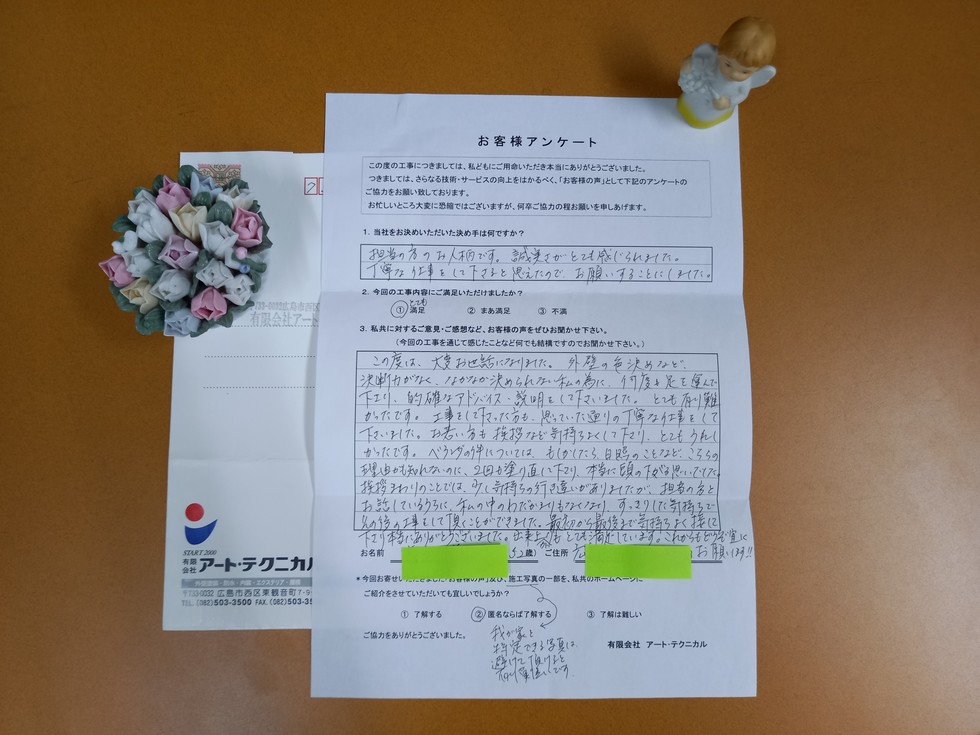 お客様アンケート
この度の工事につきましては、私どもにご用命いただき本当にありがとうございました。
つきましては、さらなる技術・サービスの向上をはかるべく、「お客様の声」として下記のアンケートの
ご協力をお願い致しております。
お忙しいところ大変に恐縮ではございますが、何卒ご協力の程お願いを申しあげます。
1. 当社をお決めいただいた決め手は何ですか?
担当の方のお人柄です。誠実さがとても感じられました。
丁寧な仕事をして下さると思えたので、お願いすることにしました。
2. 今回の工事内容にご満足いただけましたか?
とても
① 満足 ② まあ満足 ③ 不満
3. 私共に対するご意見・ご感想など、お客様の声をぜひお聞かせ下さい。
(今回の工事を通じて感じたことなど何でも結構ですのでお聞かせ下さい。)
この度は、大変お世話になりました。外壁の色決めなど、
決断力がなく、なかなか決められない私の為に、何度も足を運んで
下さり、的確なアドバイス・説明をして下さいました。とても有り難
かったです。工事をして下さった方も、思っていた通りの丁寧な仕事をして
下さいました。お若い方も挨拶など気持ちよくして下さり、とてもうれし
かったです。ベランダの件については、もしかしたら、日照のことなど、こちらの
理由かも知れないのに、2回も塗り直して下さり、本当に頭の下がる思いでした。
挨拶まわりのことでは、少し気持ちの行き違いがありましたが、担当の方と
お話しているうちに、私の中のわだかまりもなくなり、すっきりした気持ちで
その後の工事をして頂くことができました。最初から最後まで気持ちよく接して
下さり本当にありがとうございました。出来上がりもとても満足しています。これからもどうぞ宜しく
お願いします!!
お名前 52歳) ご住所 広
*今回お寄せいただきました「お客様の声」及び、施工写真の一部を、私共のホームページに
ご紹介をさせていただいても宜しいでしょうか?
① 了解する ② 匿名ならば了解する ③ 了解は難しい
我が家と
特定できる写真は
避けて頂けると
有り難いです。
ご協力をありがとうございました。
有限会社 アート・テクニカル
〒733-0032 広島市西区
有限会社アート
START 2000
有限会社 アート・テクニカル
外壁塗装・防水・内装・エクステリア・層根
〒733-0032 広島市西区東観音町7-9
TEL.(082)503-3500 FAX.(082)503-35